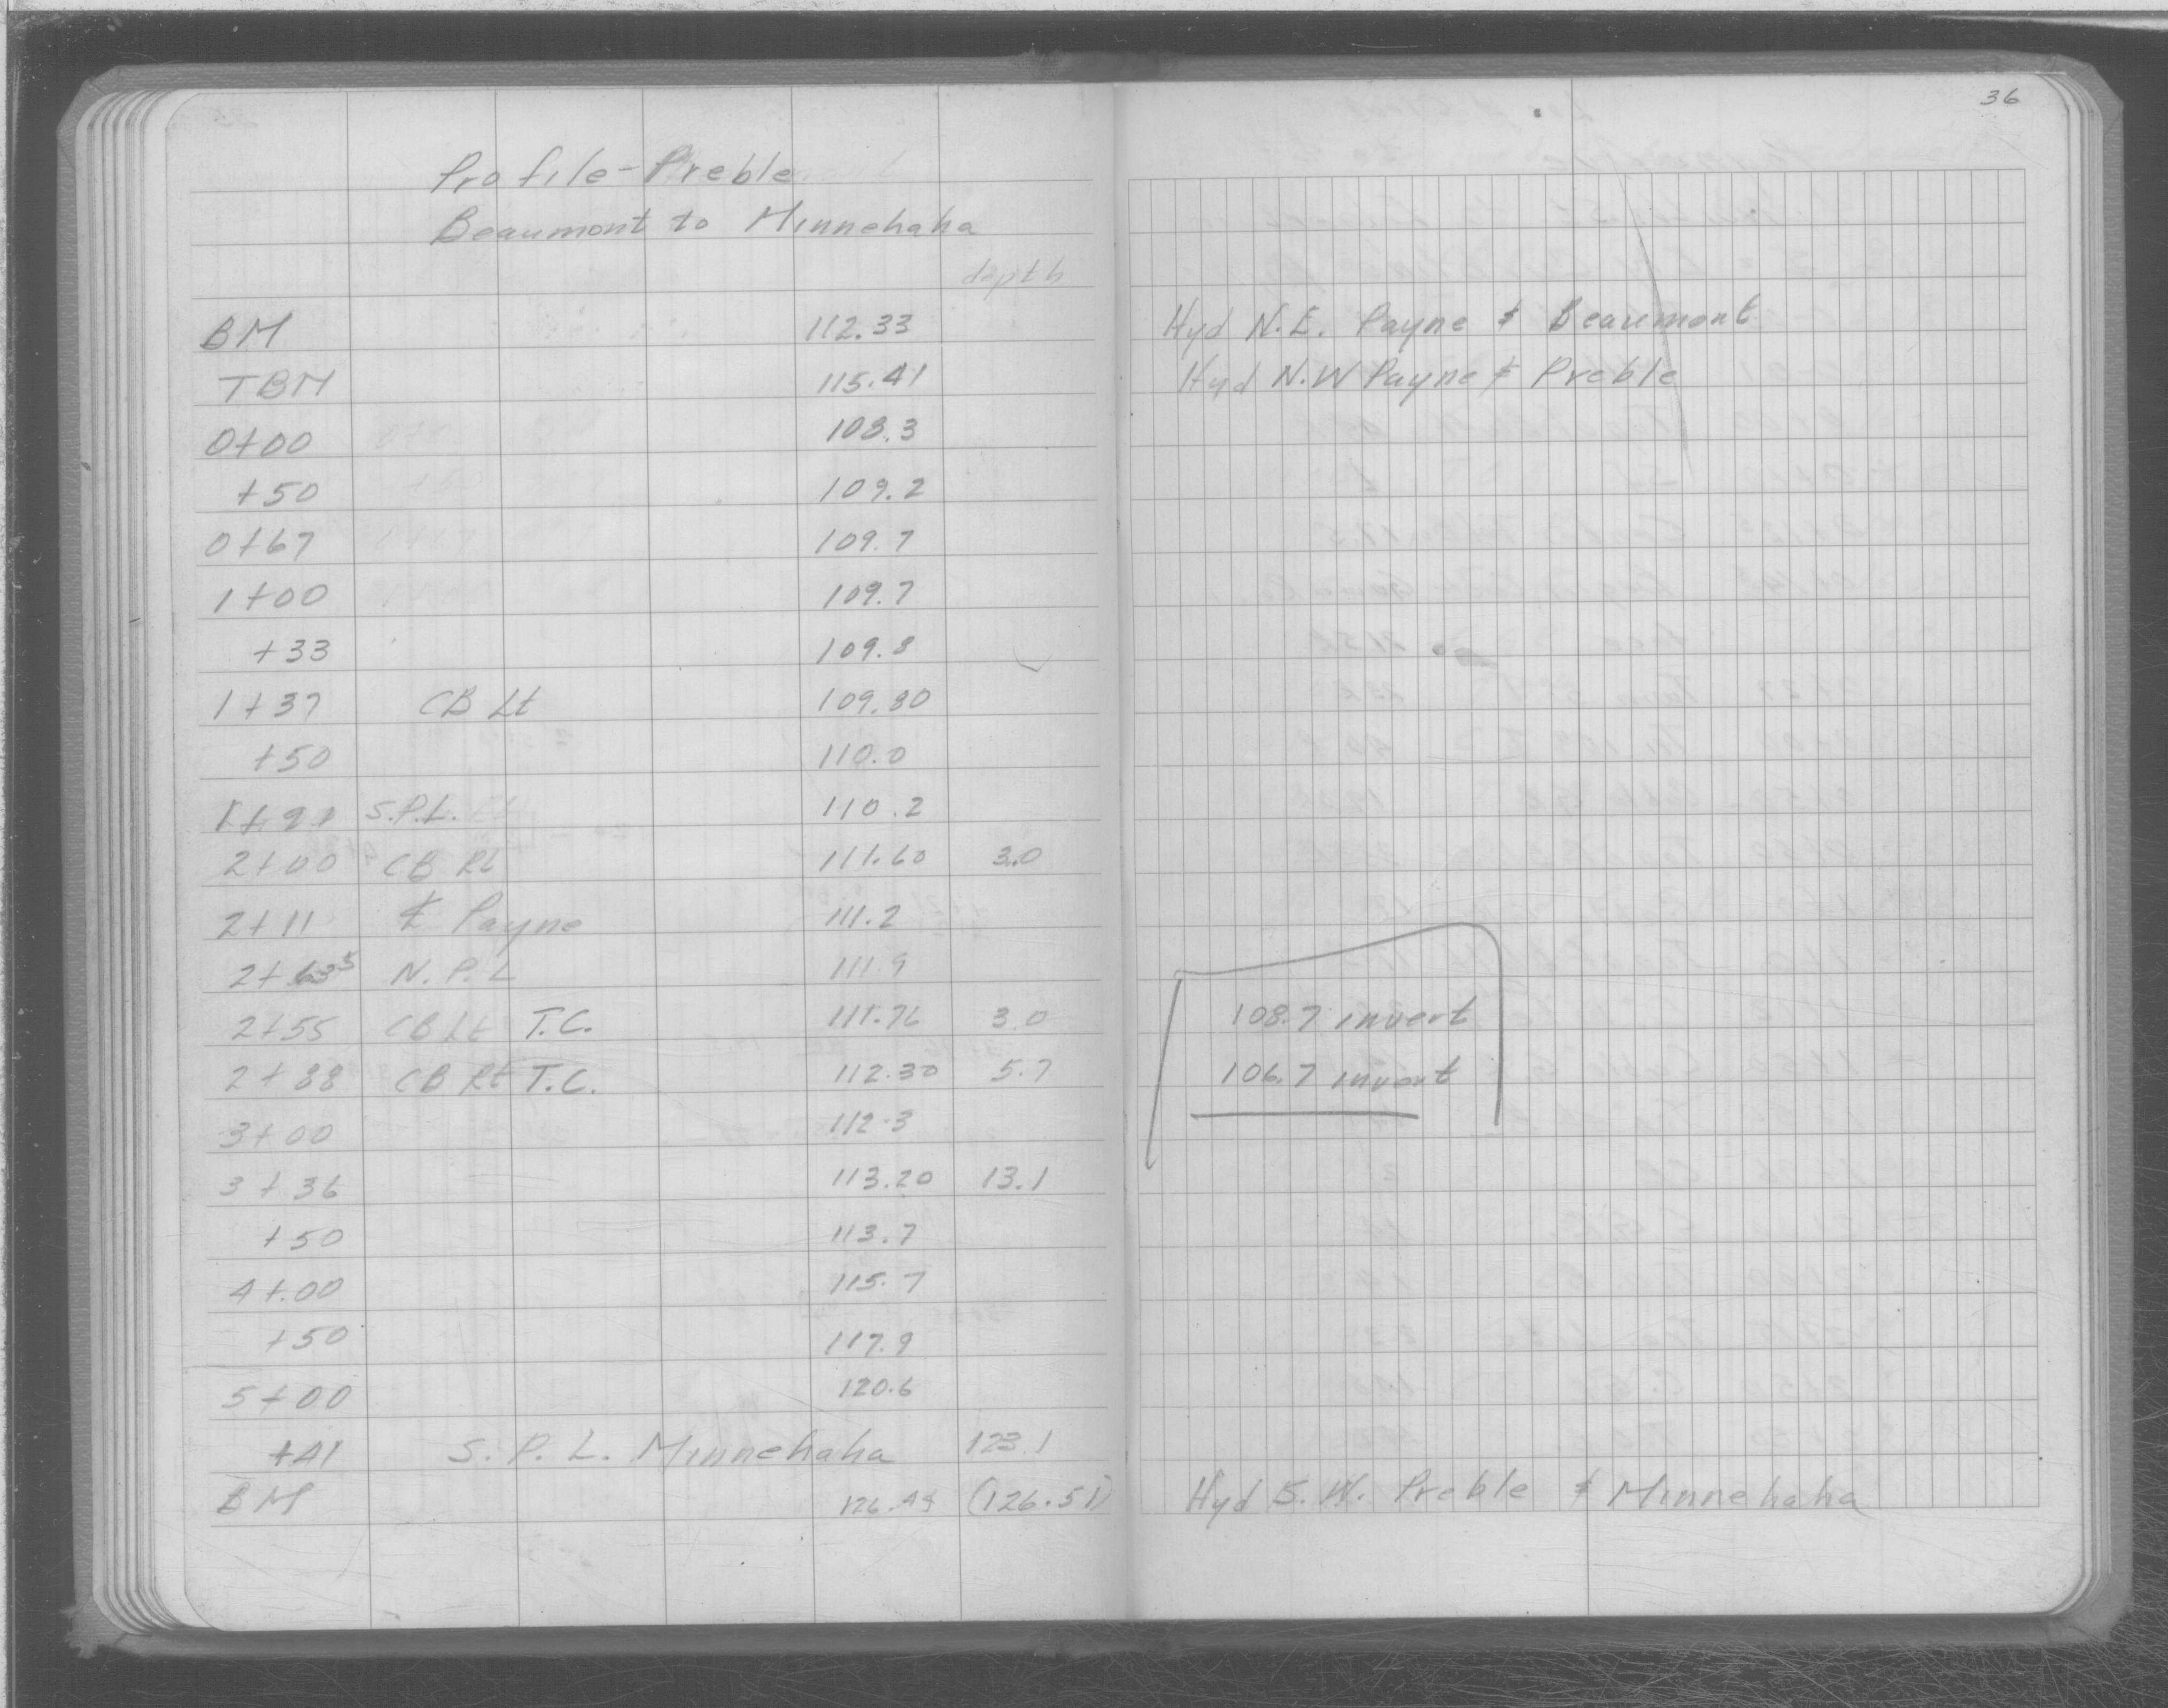 36
Profile - Preble
Beaumont to Minnehaha
depth
BM 112.33 Hyd N.E. Payne & Beaumont
TBM 115.41 Hyd N.W Payne & Preble
0+00 108.3
+50 109.2
0+67 109.7
1+00 109.7
+33 109.8
1+37 CB Lt 109.80
+50 110.0
S.P.L. 110.2
2+00 CB Rt 111.60 3.0
2+11 ℄ Payne 111.2
2+63⁵ N.P.L 111.9
2+55 CB Lt T.C. 111.76 3.0 108.7 invert
2+88 CB Rt T.C. 112.30 5.7 106.7 invert
3+00 112.3
3+36 113.20 13.1
+50 113.7
4+00 115.7
+50 117.9
5+00 120.6
+41 S.P.L. Minnehaha 123.1
BM 126.48 (126.51) Hyd S.W. Preble & Minnehaha